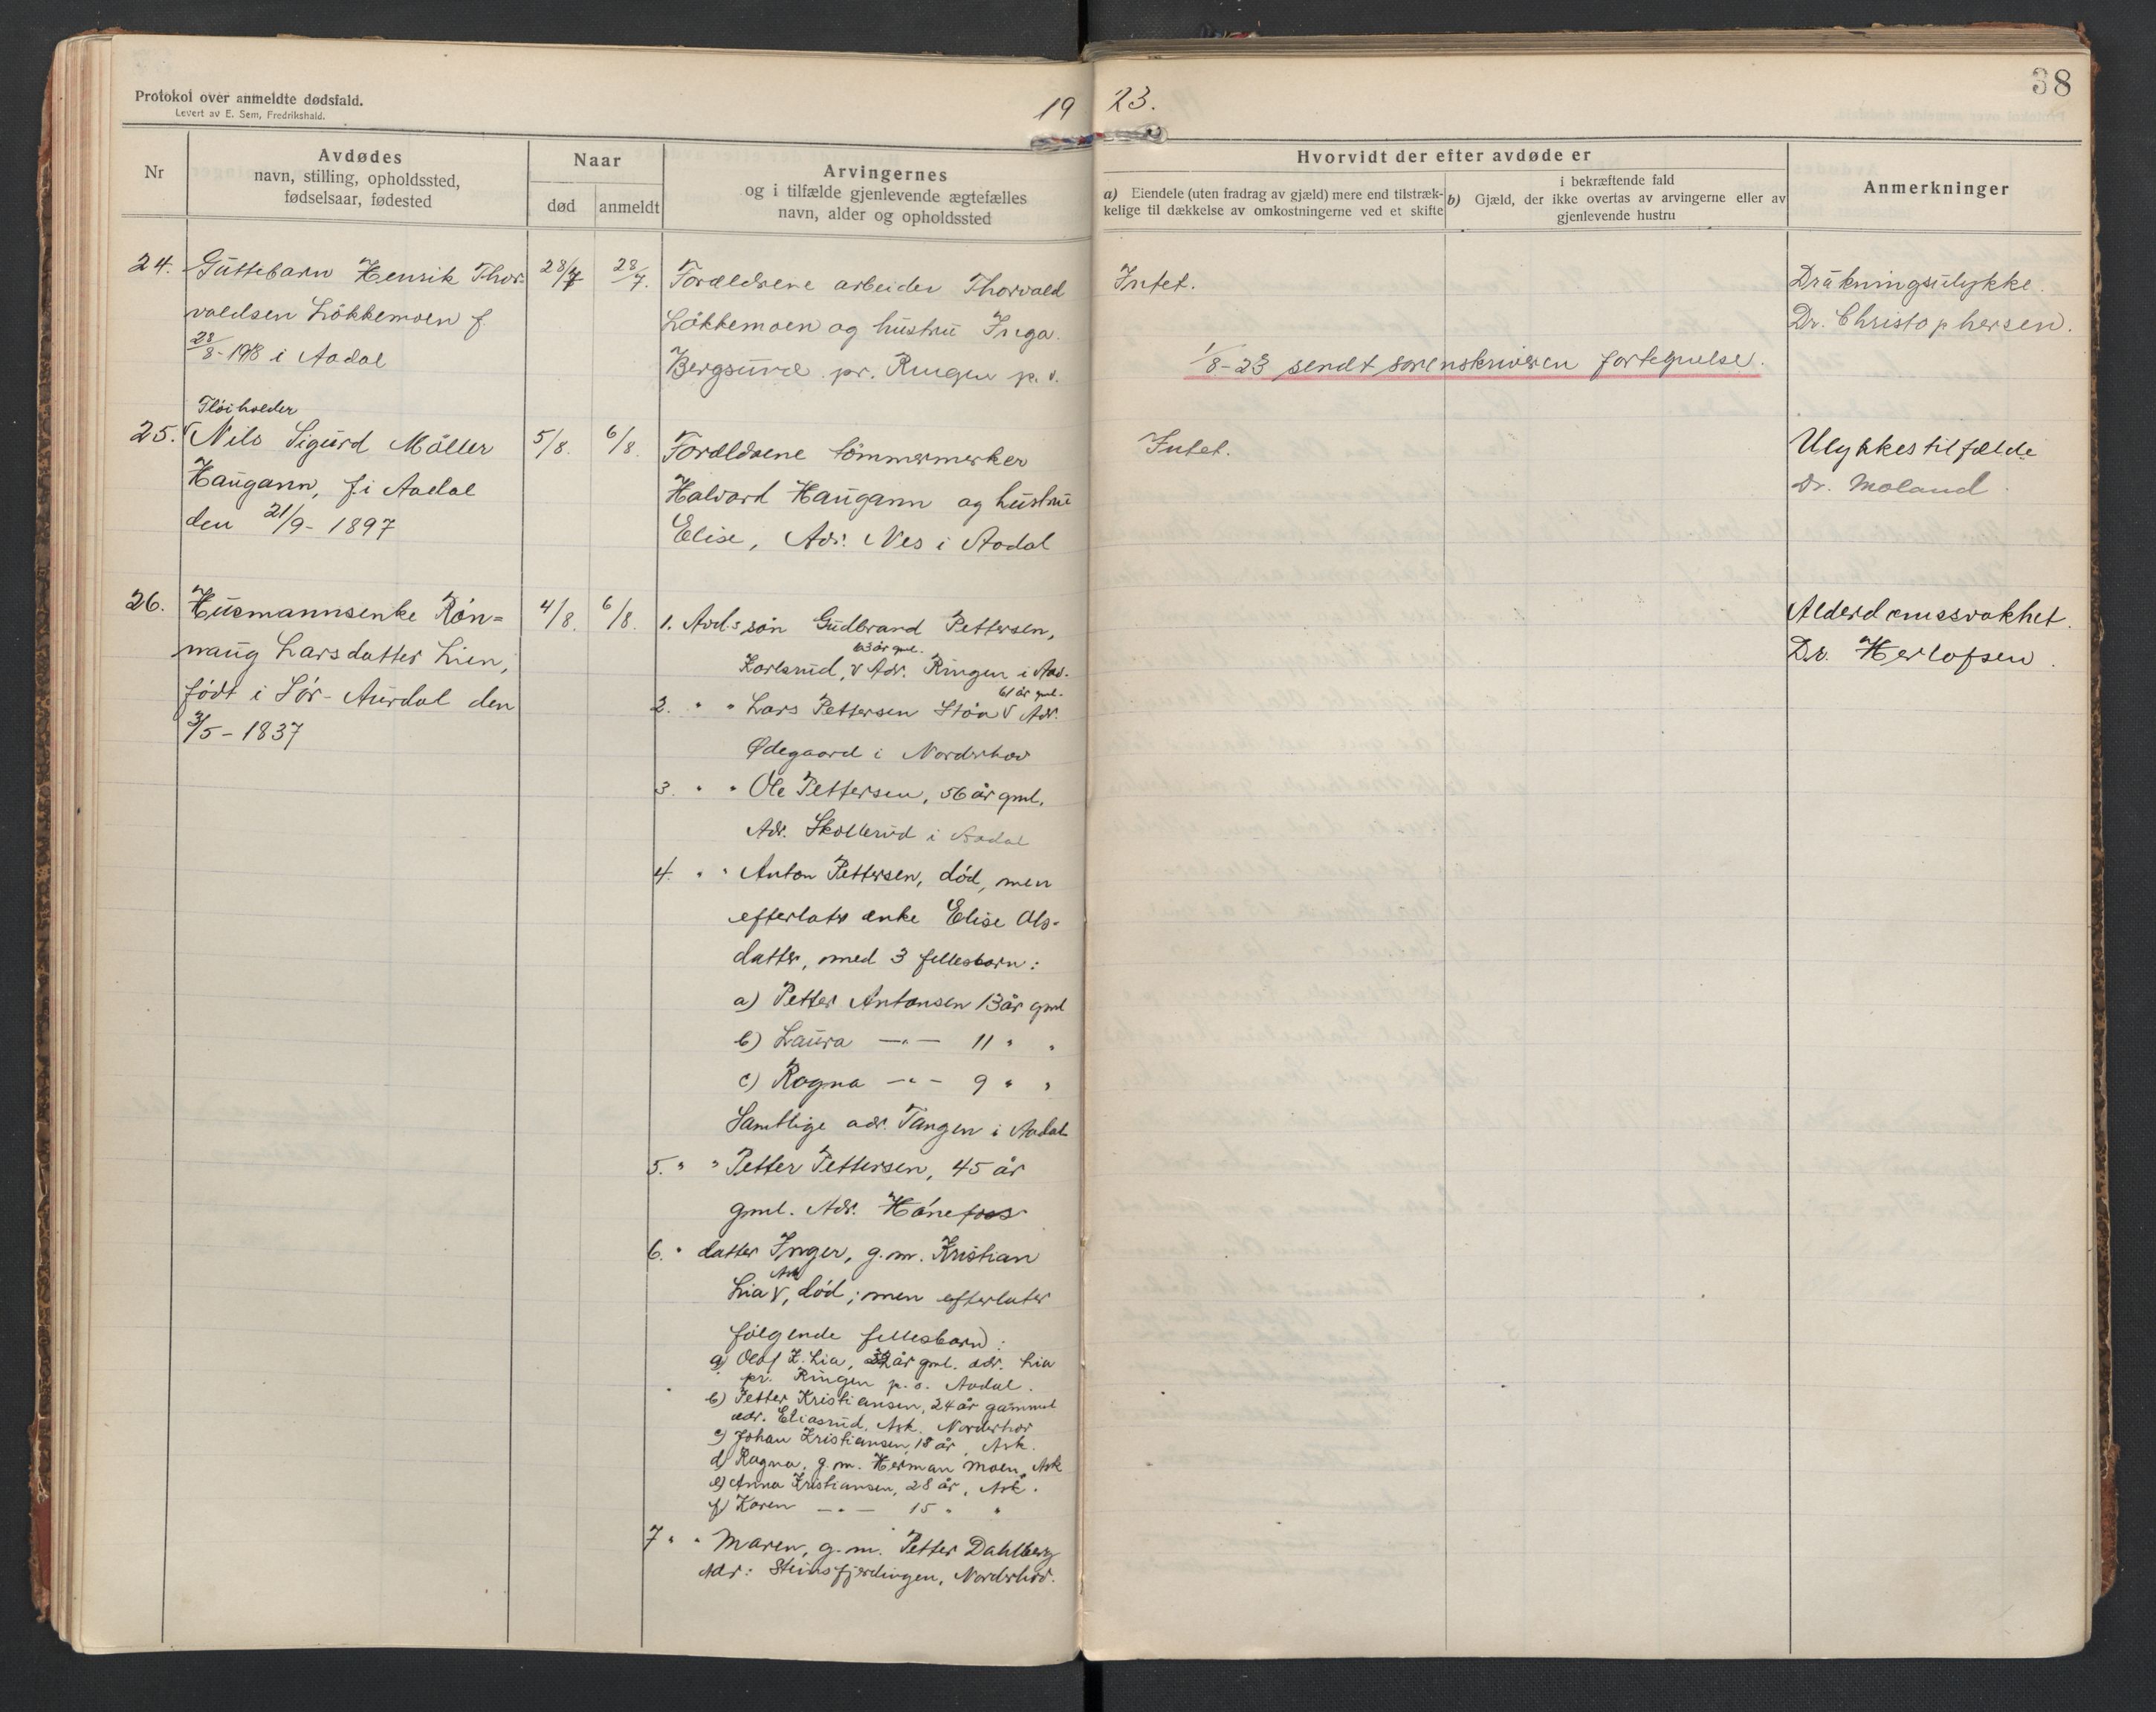 Protokol over anmeldte dødsfald.
Levert av E. Sem, Fredrikshald.
19 23.
38
Nr
Avdødes
navn, stilling, opholdssted,
fødselsaar, fødested
Naar
død
anmeldt
Arvingernes
og i tilfælde gjenlevende ægtefælles
navn, alder og opholdssted
Hvorvidt der efter avdøde er
a) Eiendele (uten fradrag av gjæld) mere end tilstræk-
kelige til dækkelse av omkostningerne ved et skifte
i bekræftende fald
b) Gjæld, der ikke overtas av arvingerne eller av
gjenlevende hustru
Anmerkninger
24.
Guttebarn Henrik Thor-
valdsen Løkkemoen f
28/8-1918 i Aadal
28/7
28/7.
Forældrene arbeider Thorvald
Løkkemoen og hustru Inga
Bergsund pr. Ringen p. o.
Intet.
1/8-23 sendt sorenskriveren fortegnelse.
Drukningsulykke.
Dr. Christophersen.
25.
Fløiholder
Nils Sigurd Møller
Haugann, f. i Aadal
den 21/9-1897
5/8.
6/8.
Forældrene tømmermerker
Halvard Haugann og hustru
Elise, Adr. Nes i Aadal
Intet.
Ulykkestilfælde
Dr. Moland.
26.
Husmannsenke Røn=
naug Larsdatter Lien,
født i Sør-Aurdal den
3/5-1837
4/8.
6/8.
1. Avd.s søn Gudbrand Pettersen,
63 år gml.
Karlsrud, V Adr. Ringen i Aad.
61 år gml.
2. " " Lars Pettersen Støa V Adr.
Ødegaard i Norderhov
3. " " Ole Pettersen, 56 år gml.
Adr. Skollerud i Aadal
4. " " Anton Pettersen, død, men
efterlater enke Elise Ols-
datter, med 3 fellesbarn:
a) Petter Antonsen 13 år gml
b) Laura —"— 11 " "
c) Ragna —"— 9 " "
Samtlige adr. Tangen i Aadal
5. " " Petter Pettersen, 45 år
gml. Adr. Hønefoss
6. " datter Inger, g.m. Kristian
Ask
Lia V, død; men efterlater
følgende fellesbarn:
a) Olaf K. Lia, år gml. adr. Lia
pr. Ringen p.o. Aadal.
b) Petter Kristiansen, 24 år gammel
adr. Eliasrud, Ask, Norderhov
c) Johan Kristiansen, 18 år, Ask.
d) Ragna, g.m. Herman Moen, Ask
e) Anna Kristiansen, 28 år, Ask.
f) Karen —"— 15 " "
7 " " Maren, g.m. Petter Dahlberg
Adr: Steinsfjerdingen, Norderhov.
Alderdomssvakhet.
Dr. Herlofsen.